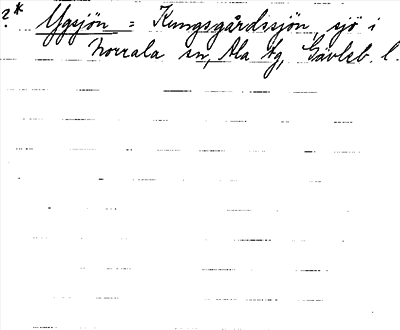 ?* Ygsjön = Kungsgårdssjön, sjö i
Norrala sn, Ala tg, Gävleb. l.